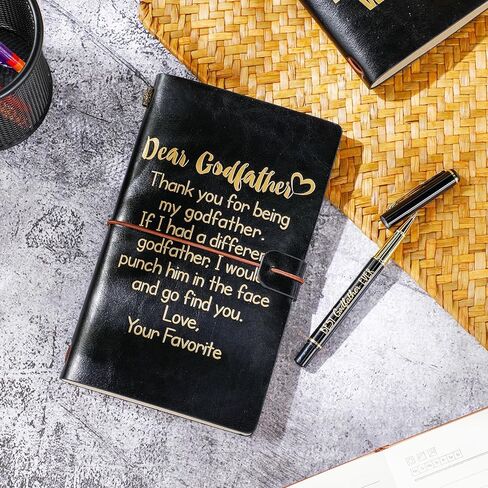 Dear Godfather
Thank you for being
my godfather.
If I had a different
godfather. I would
punch him in the face
and go find you.
Love,
Your Favorite
BEST Godfather EVER